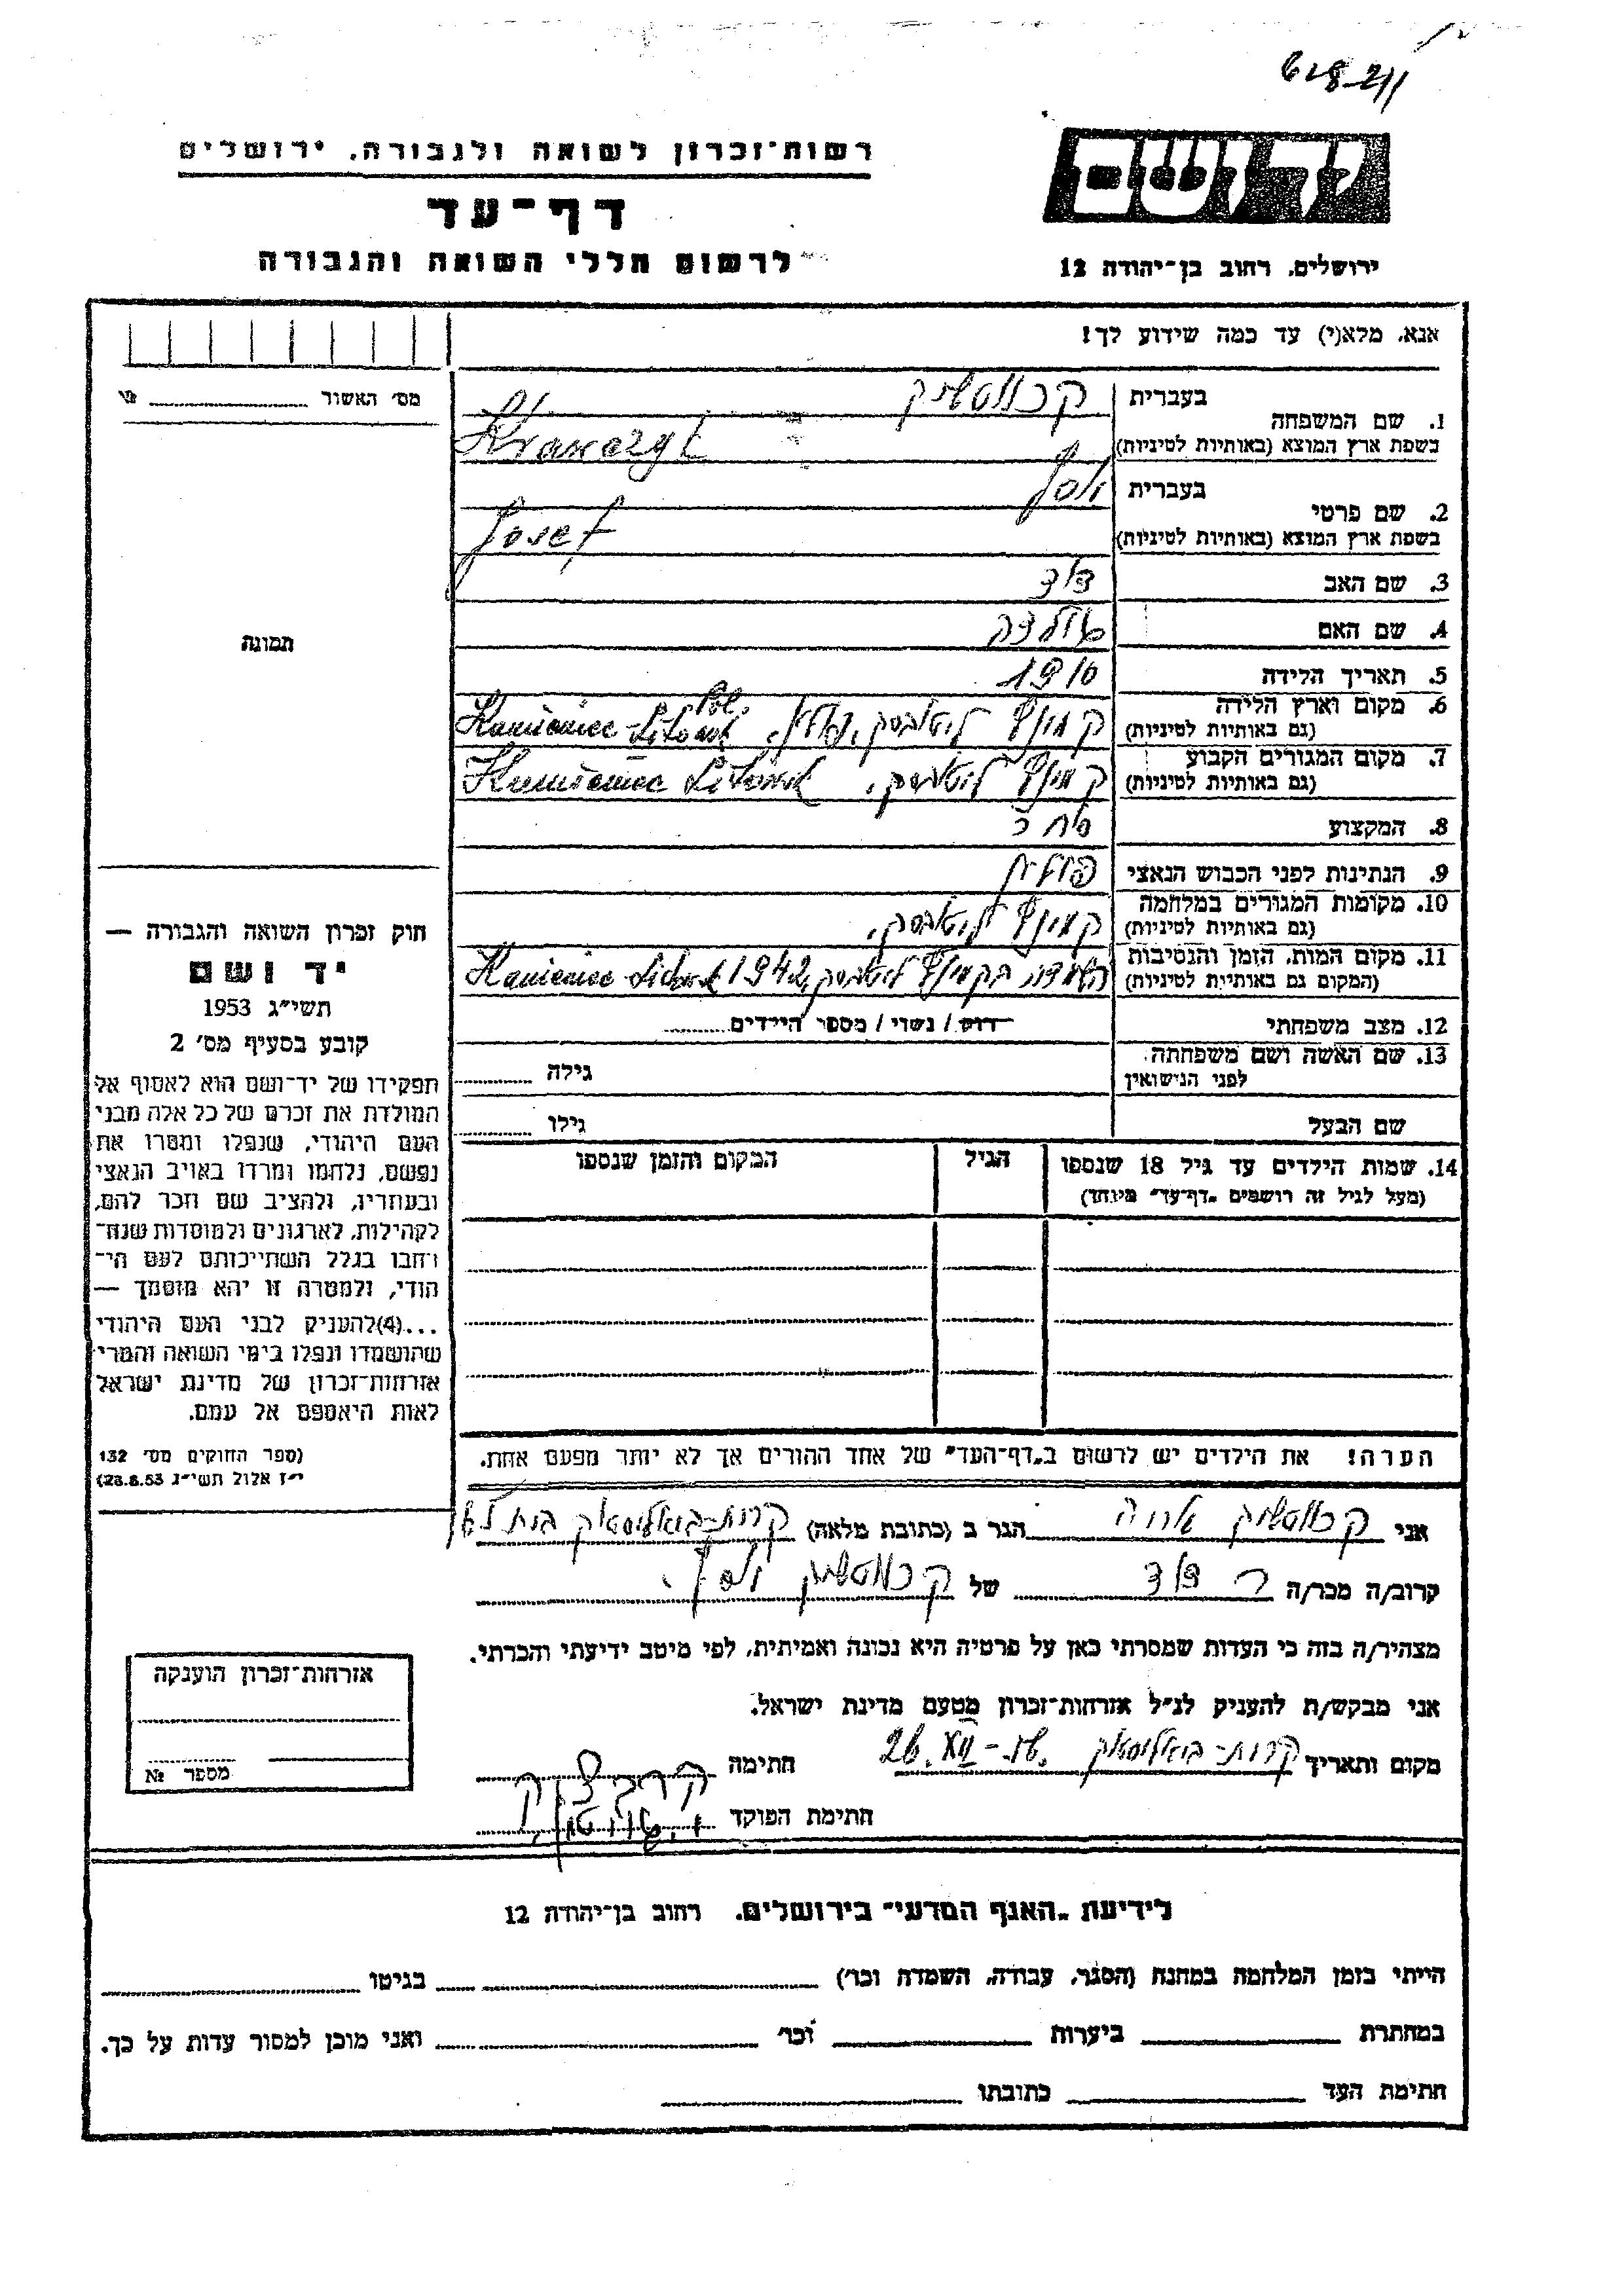 רשות־זכרון לשואה ולגבורה, ירושלים
דף־עד
לרשום חללי השואה והגבורה
יד ושם
ירושלים, רחוב בן־יהודה 12
אנא, מלא(י) עד כמה שידוע לך!
מס׳ האשור №
1. שם המשפחה
בעברית
בשפת ארץ המוצא (באותיות לטיניות)
2. שם פרטי
בעברית יוסף
בשפת ארץ המוצא (באותיות לטיניות) Josef
3. שם האב דוד
4. שם האם
5. תאריך הלידה 1910
6. מקום וארץ הלידה קמניץ ליטובסק, פולין, Kamieniec-Litowsk Pol.
(גם באותיות לטיניות)
7. מקום המגורים הקבוע קמניץ ליטובסק, Kamieniec Litowsk
(גם באותיות לטיניות)
8. המקצוע סוחר
9. הנתינות לפני הכבוש הנאצי פולנית
10. מקומות המגורים במלחמה קמניץ ליטובסק,
(גם באותיות לטיניות)
11. מקום המות, הזמן והנסיבות בקמניץ ליטובסק, 1942 Kamieniec Litowsk
(המקום גם באותיות לטיניות)
12. מצב משפחתי רווק / נשוי / מספר הילדים
13. שם האשה ושם משפחתה
לפני הנישואין
גילה
שם הבעל
גילו
תמונה
14. שמות הילדים עד גיל 18 שנספו
(מעל לגיל זה רושמים „דף־עד״ מיוחד)
הגיל
המקום והזמן שנספו
הערה! את הילדים יש לרשום ב„דף־העד״ של אחד ההורים אך לא יותר מפעם אחת.
חוק זכרון השואה והגבורה —
יד ושם
תשי״ג 1953
קובע בסעיף מס׳ 2
תפקידו של יד־ושם הוא לאסוף אל
המולדת את זכרם של כל אלה מבני
העם היהודי, שנפלו ומסרו את
נפשם, נלחמו ומרדו באויב הנאצי
ובעוזריו, ולהציב שם וזכר להם,
לקהילות, לארגונים ולמוסדות שנח־
רבו בגלל השתייכותם לעם הי־
הודי, ולמטרה זו יהא מוסמך —
...(4)להעניק לבני העם היהודי
שהושמדו ונפלו בימי השואה והמרי
אזרחות־זכרון של מדינת ישראל
לאות היאספם אל עמם.
(ספר החוקים מס׳ 132
י״ז אלול תשי״ג 28.8.53)
אני הגר ב (כתובת מלאה) קרית-ביאליסטוק
קרוב/ה מכר/ה של יוסף.
מצהיר/ה בזה כי העדות שמסרתי כאן על פרטיה היא נכונה ואמיתית, לפי מיטב ידיעתי והכרתי.
אני מבקש/ת להעניק לנ״ל אזרחות־זכרון מטעם מדינת ישראל.
מקום ותאריך קרית-ביאליסטוק 26.XII-56. חתימה
חתימת הפוקד
אזרחות־זכרון הוענקה
מספר №
לידיעת „האגף המדעי״ בירושלים, רחוב בן־יהודה 12
הייתי בזמן המלחמה במחנה (הסגר, עבודה, השמדה וכו׳) בגיטו
במחתרת ביערות וכו׳ ואני מוכן למסור עדות על כך.
חתימת העד כתובתו